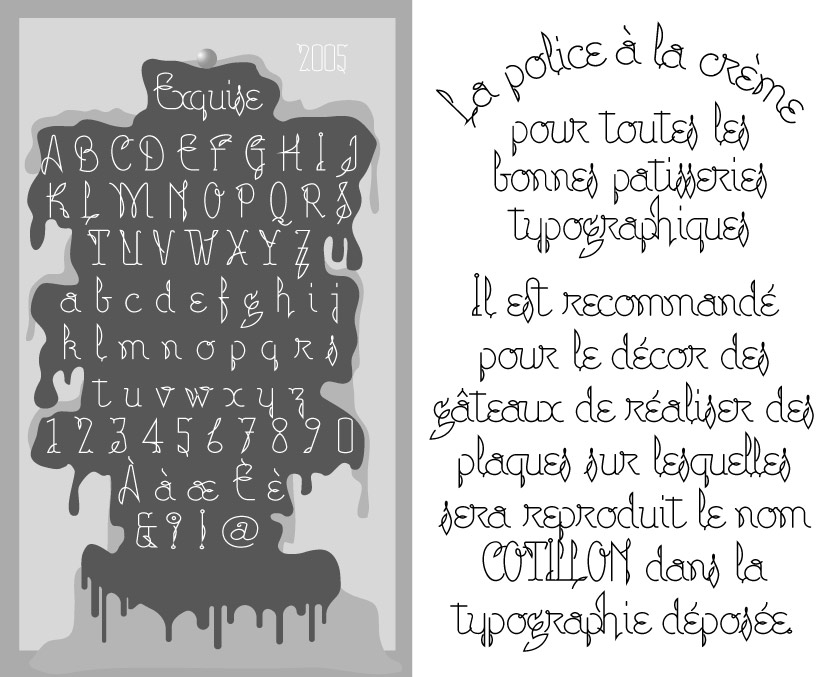 2005
Exquise
A B C D E F G H I J
K L M N O P Q R S
T U V W X Y Z
a b c d e f g h i j
k l m n o p q r s
t u v w x y z
1 2 3 4 5 6 7 8 9 0
À à æ È è
& ? ! @
La police à la crème
pour toutes les
bonnes patisseries
typographiques
Il est recommandé
pour le décor des
gâteaux de réaliser des
plaques sur lesquelles
sera reproduit le nom
COTILLON dans la
typographie déposée.